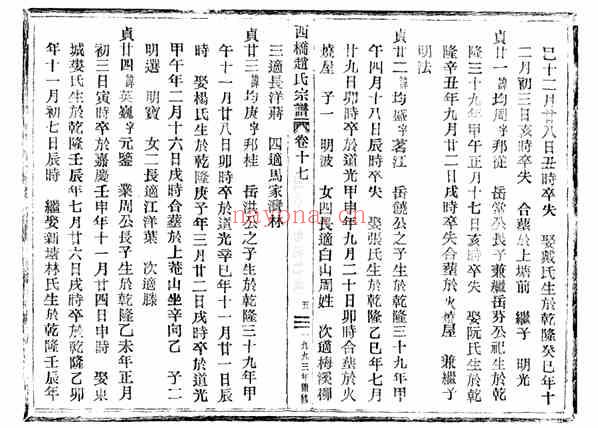 巳十二月廿八日丑時卒失　娶戴氏生於乾隆癸巳年十
二月初三日亥時卒失　合葬於上塘前　繼子　明光
貞廿一諱均周字邦從　岳堂公長子兼繼岳芬公祀生於乾
隆三十九年甲午正月十七日亥時卒失　娶阮氏生於乾
隆辛丑年九月廿二日戌時卒失合葬於火燒屋　兼繼子
明法
貞廿二諱均盛字茗江　岳饒公之子生於乾隆三十九年甲
午四月十八日辰時卒失　娶張氏生於乾隆乙巳年七月
廿九日卯時卒於道光甲申年九月二十日卯時合葬於火
燒屋　子一　明波　女四長適白山周姓　次適梅溪
西橋趙氏宗譜　卷十七　五　一九九三年重修
三適長洋蔣　四適馬家灣林
貞廿三諱均庚字邦桂　岳洪公之子生於乾隆三十九年甲
午十一月廿八日卯時卒於道光辛巳年十一月廿一日辰
時　娶楊氏生於乾隆庚子年三月廿二日戌時卒於道光
甲午年二月十六日戌時合葬於上菴山坐辛向乙　子二
明選　明寶　女二長適江洋葉　次適滕
貞廿四諱英巍字元鑒　業周公長子生於乾隆乙未年正月
初三日寅時卒於嘉慶壬申年十一月廿四日申時　娶東
城婁氏生於乾隆壬辰年七月廿六日戌時卒於乾隆乙卯
年十一月初七日辰時　繼娶新塘林氏生於乾隆壬辰年
nayona.cn